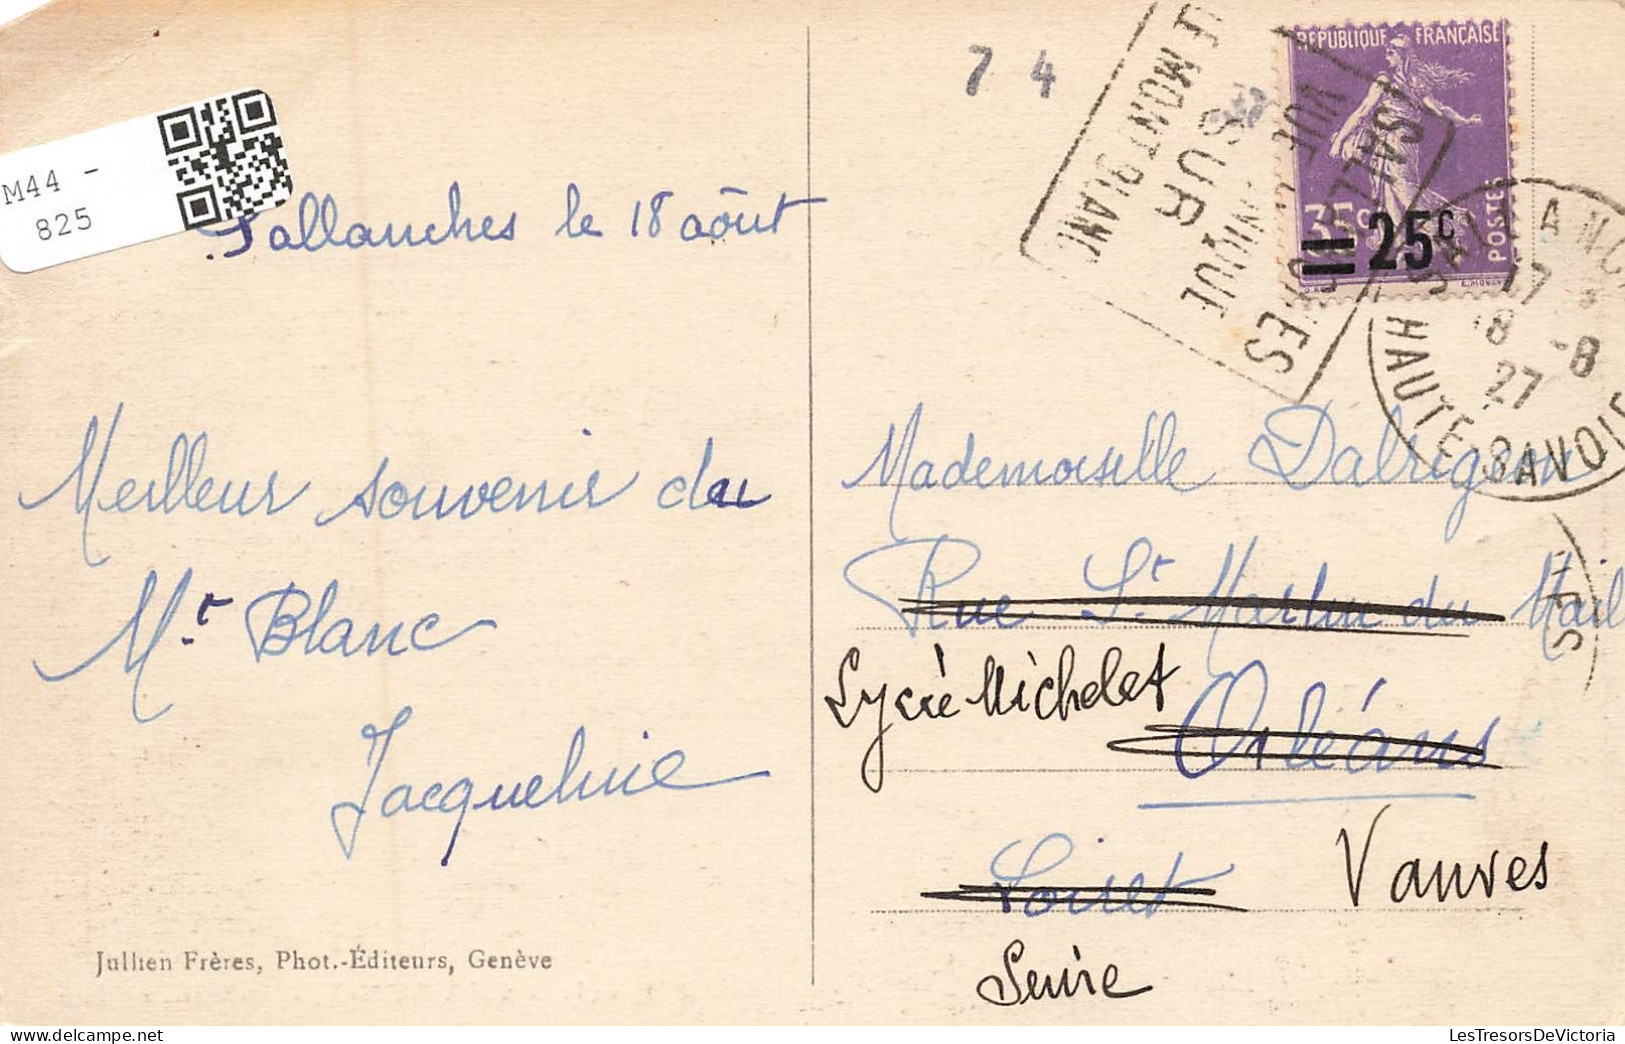 M44 -
825
Sallanches le 18 août
Meilleur souvenir du
Mt Blanc
Jacqueline
Jullien Frères, Phot.-Éditeurs, Genève
7 4
RÉPUBLIQUE FRANÇAISE
POSTES
35c
25c
SUR
LE MONT BLANC
SALLANCHES
17
18 -8
27
HAUTE-SAVOIE
Mademoiselle
Rue St Martin du Mail
Lycée Michelet
Orléans
Loiret
Vanves
Seine
LesTresorsDeVictoria